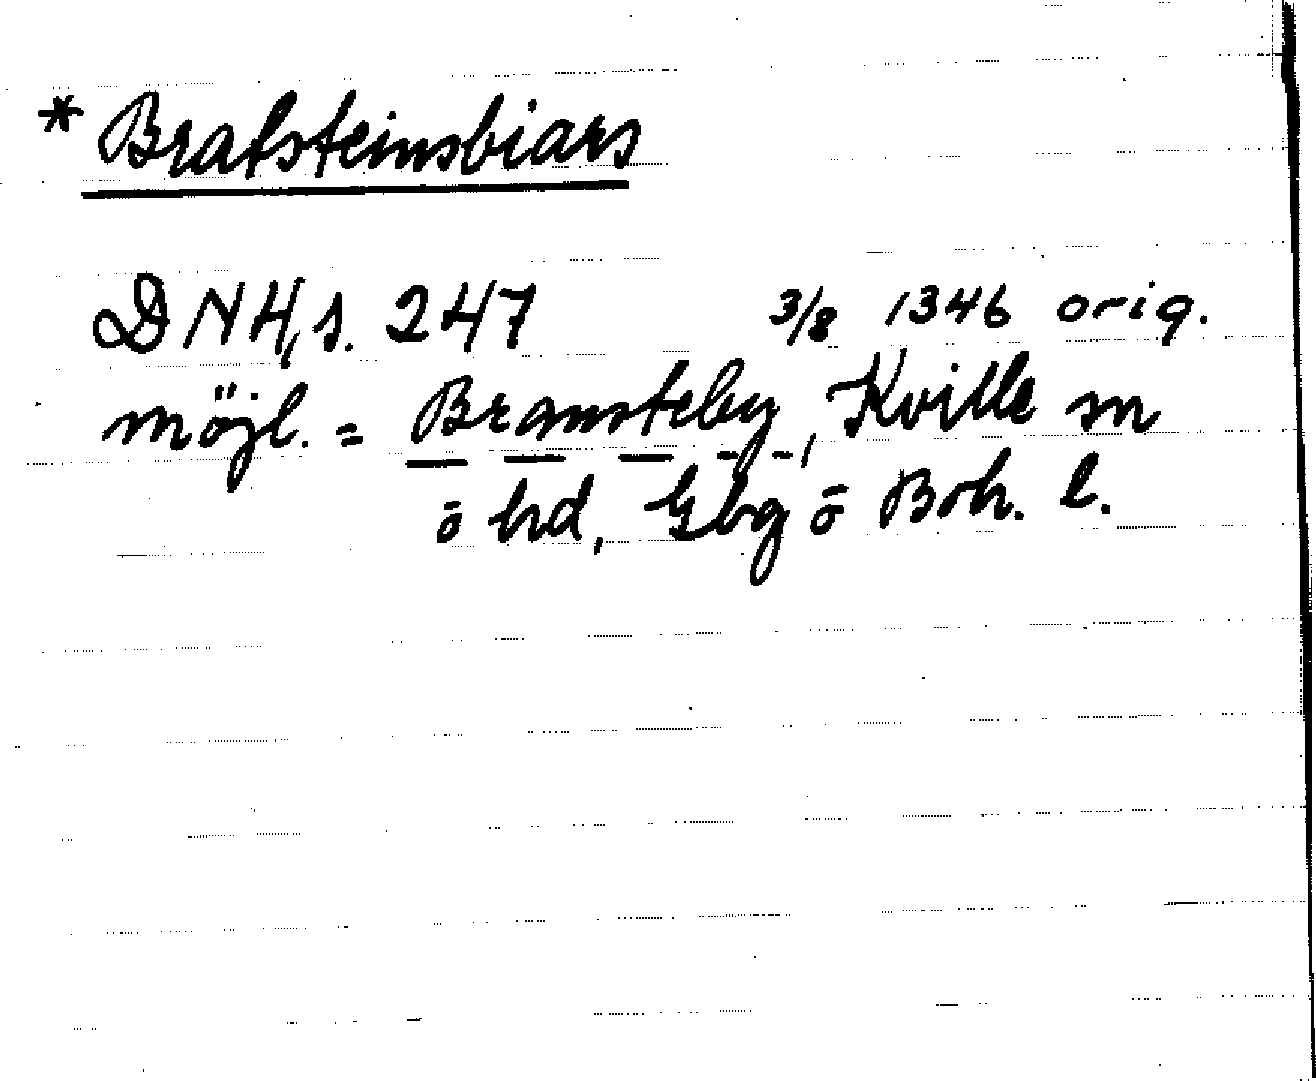 * Bratsteinsbiars
DN 4, s. 247 3/8 1346 orig.
möjl. = Bramsteby, Kville sn
o hd, Gbg o Boh. l.